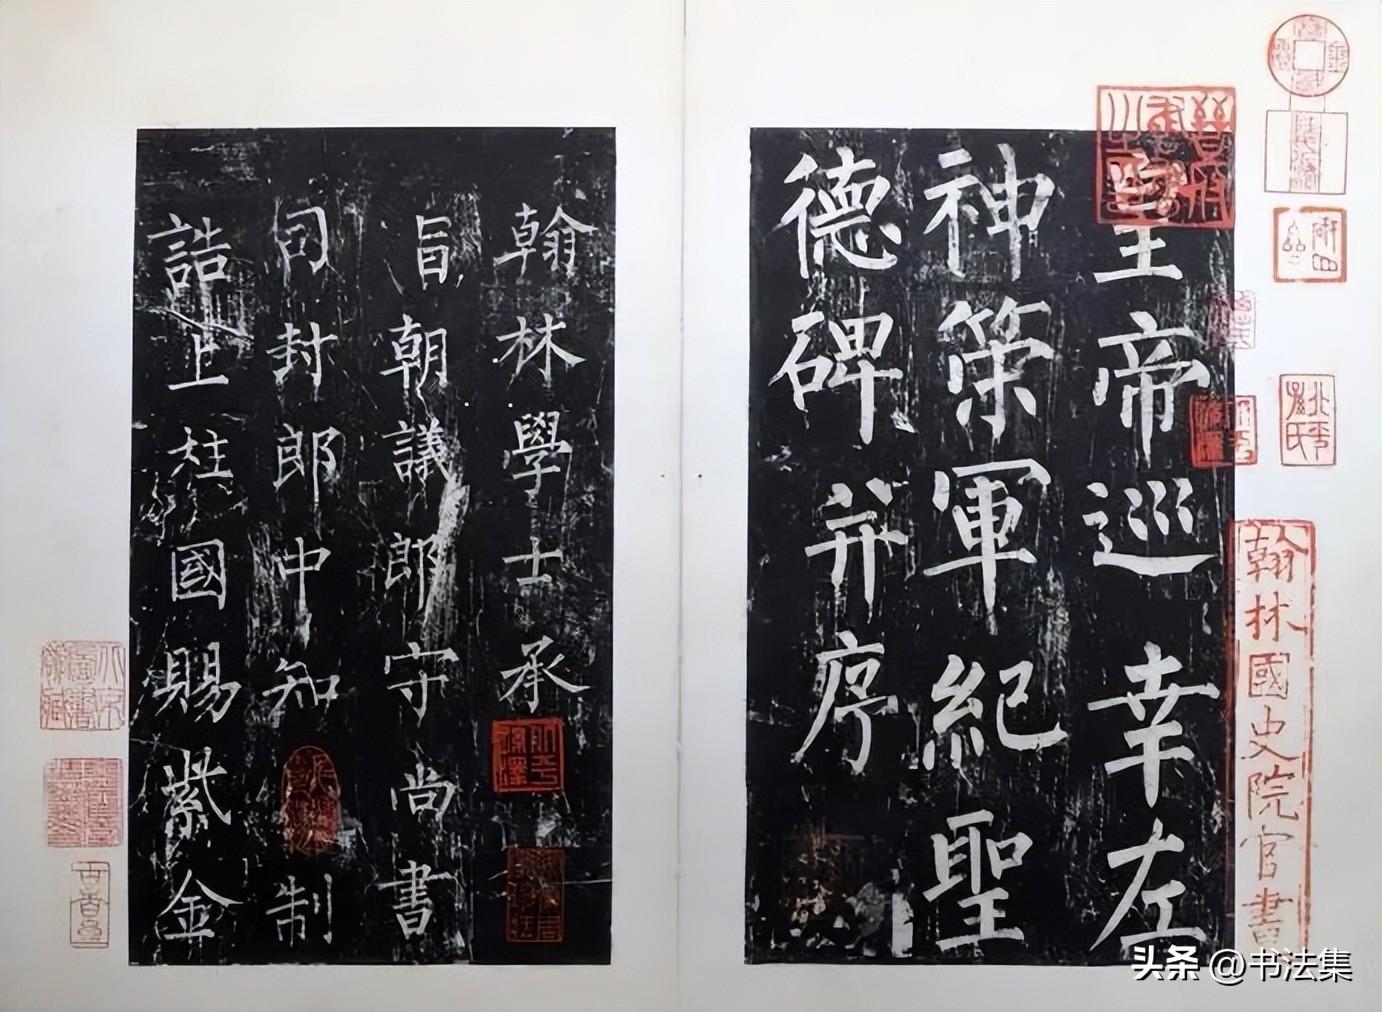 皇帝巡幸左
神策軍紀聖
德碑并序
翰林學士承
旨朝議郎守尚書
司封郎中知制
誥上柱國賜紫金
翰林國史院官書
北平孫氏
頭條 @书法集